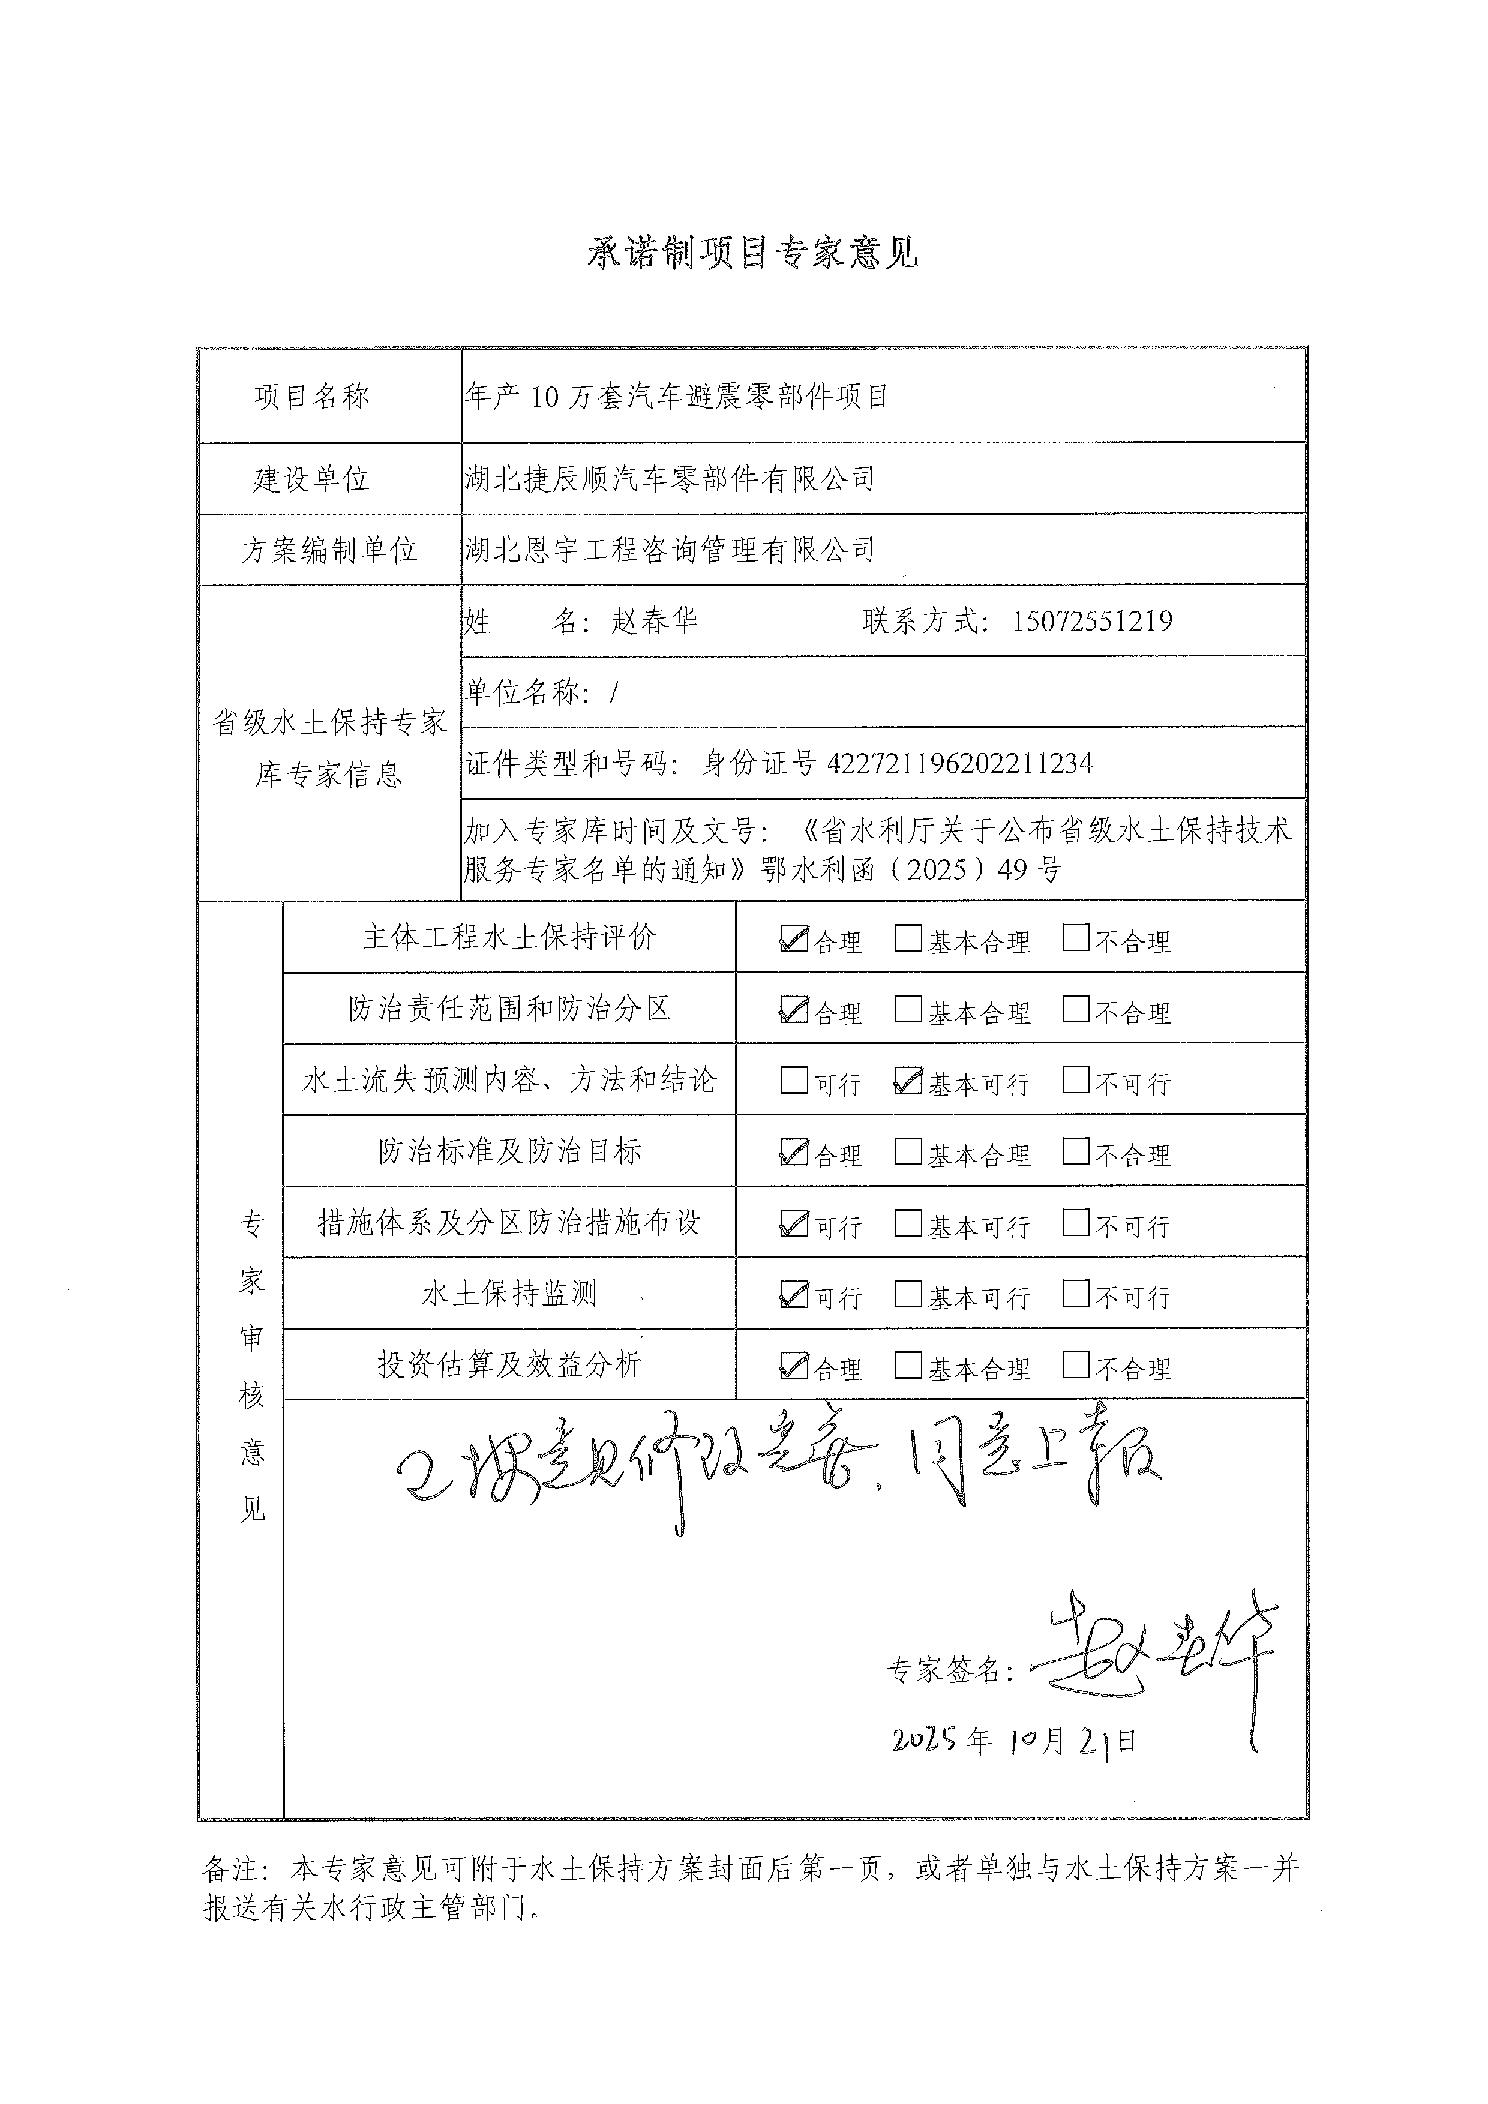 承诺制项目专家意见
项目名称 年产 10 万套汽车避震零部件项目
建设单位 湖北捷辰顺汽车零部件有限公司
方案编制单位 湖北恩宇工程咨询管理有限公司
省级水土保持专家库专家信息
姓 名：赵春华 联系方式：15072551219
单位名称：/
证件类型和号码：身份证号 422721196202211234
加入专家库时间及文号：《省水利厅关于公布省级水土保持技术
服务专家名单的通知》鄂水利函（2025）49 号
专家审核意见
主体工程水土保持评价 ☑合理 □基本合理 □不合理
防治责任范围和防治分区 ☑合理 □基本合理 □不合理
水土流失预测内容、方法和结论 □可行 ☑基本可行 □不可行
防治标准及防治目标 ☑合理 □基本合理 □不合理
措施体系及分区防治措施布设 ☑可行 □基本可行 □不可行
水土保持监测 ☑可行 □基本可行 □不可行
投资估算及效益分析 ☑合理 □基本合理 □不合理
已按意见修改完善、同意上报
专家签名：赵春华
2025年 10月 21日
备注：本专家意见可附于水土保持方案封面后第一页，或者单独与水土保持方案一并
报送有关水行政主管部门。